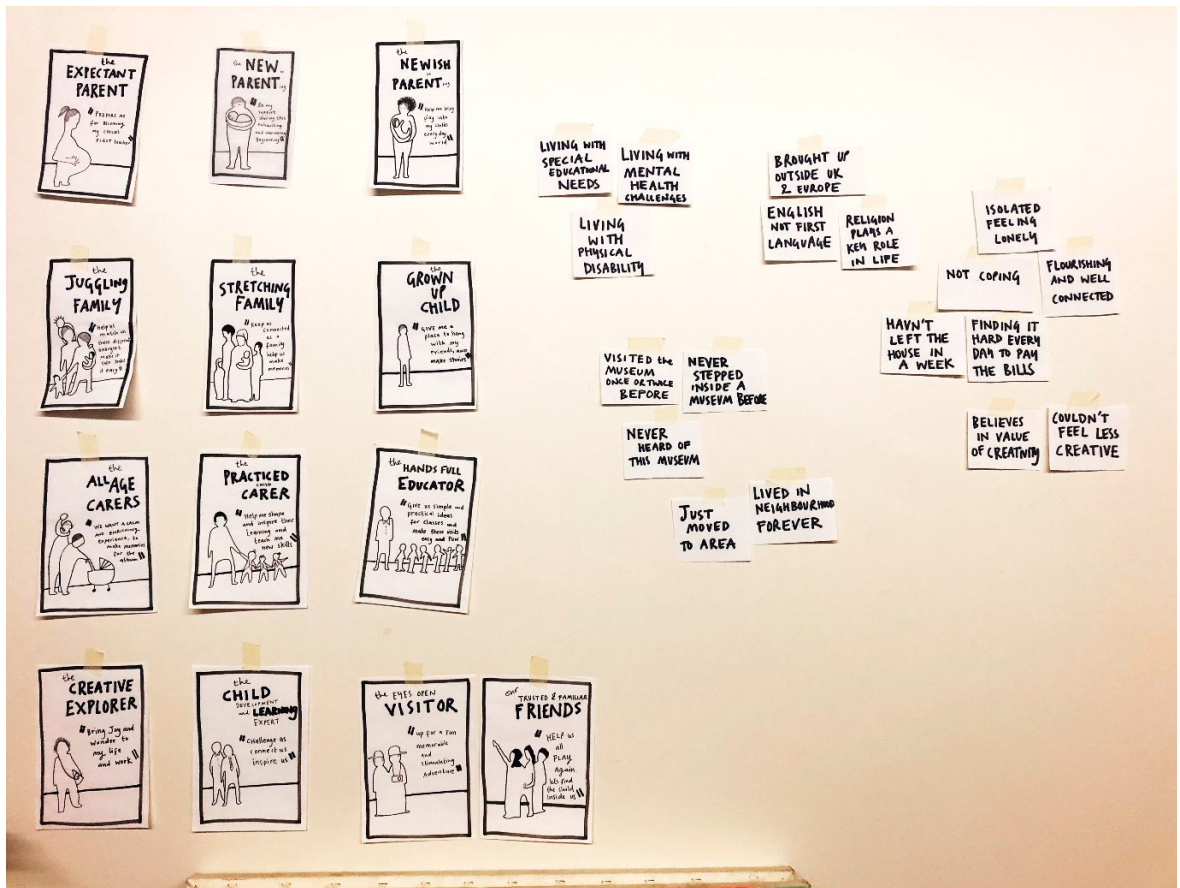 the
EXPECTANT
PARENT
"PREPARE ME
FOR BECOMING
MY CHILD'S
FIRST TEACHER"
the NEW
PARENT
"Be my
support
during this
exhausting
and
Beginning"
the
NEWISH
PARENT
"Help me bring
play into
my child's
everyday
world"
the
JUGGLING
FAMILY
"Help us
match up
these different
energies
make it
look
easy"
the
STRETCHING
FAMILY
"Keep us
connected
as a
family
help us
make
memories"
the
GROWN
UP
CHILD
"GIVE ME A
PLACE to hang
with my
friends, and
make stories"
the
ALL AGE
CARERS
"WE WANT A CALM
AND ENRICHING
EXPERIENCE, to
make memories
for the
album"
the
PRACTICED
CHILD
CARER
"Help me shape
and inspire their
learning and
teach me
new skills"
the HANDS FULL
EDUCATOR
"Give us simple and
practical ideas
for classes and
make these visits
easy and fun"
the
CREATIVE
EXPLORER
"Bring Joy and
Wonder to
my life
and work"
the
CHILD
DEVELOPMENT
and LEARNING
EXPERT
"Challenge us
connect us
inspire us"
the EYES OPEN
VISITOR
"up for a fun
memorable
and
stimulating
Adventure"
our TRUSTED & FAMILIAR
FRIENDS
"HELP us
all
PLAY
Again
lets find
the child
inside us"
LIVING WITH
SPECIAL
EDUCATIONAL
NEEDS
LIVING WITH
MENTAL
HEALTH
CHALLENGES
LIVING
WITH
PHYSICAL
DISABILITY
BROUGHT UP
OUTSIDE UK
& EUROPE
ENGLISH
NOT FIRST
LANGUAGE
RELIGION
PLAYS A
KEY ROLE
IN LIFE
ISOLATED
FEELING
LONELY
NOT COPING
FLOURISHING
AND WELL
CONNECTED
HAVN'T
LEFT THE
HOUSE IN
A WEEK
FINDING IT
HARD EVERY
DAY TO PAY
THE BILLS
VISITED the
MUSEUM
ONCE OR TWICE
BEFORE
NEVER
STEPPED
INSIDE A
MUSEUM BEFORE
NEVER
HEARD OF
THIS MUSEUM
BELIEVES
IN VALUE
OF CREATIVITY
COULDN'T
FEEL LESS
CREATIVE
JUST
MOVED
TO AREA
LIVED IN
NEIGHBOURHOOD
FOREVER